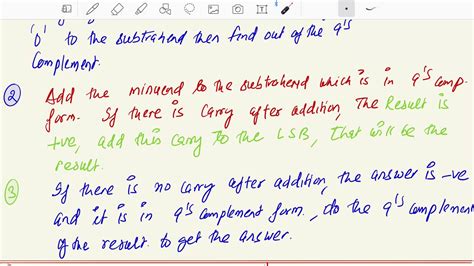 '0' to the subtrahend then find out of the 9's
Complement.
② Add the minuend to the subtrahend which is in 9's comp.
form. If there is Carry after addition, The Result is
+ve, add this carry to the LSB, That will be the
result.
③ If there is no carry after addition, the answer is -ve
and it is in 9's complement form., do the 9's complement
of the result. to get the answer.